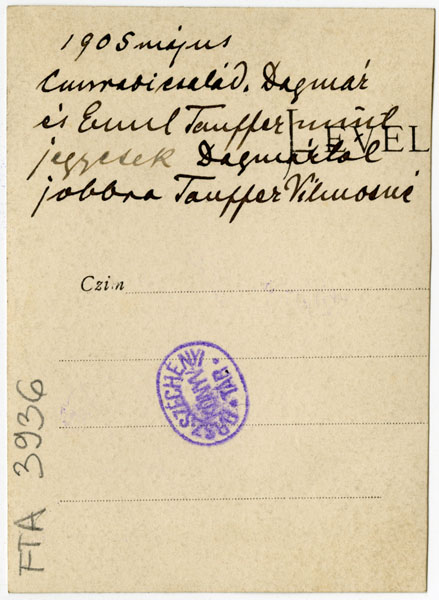 1905 május
Cunradi család. Dagmár
és Emil Tauffer mint
jegyesek Dagmártól
jobbra Tauffer Vilmosné
LEVEL
Czim
ORSZ. SZÉCHÉNYI
KÖNYVTÁR
FTA 3936